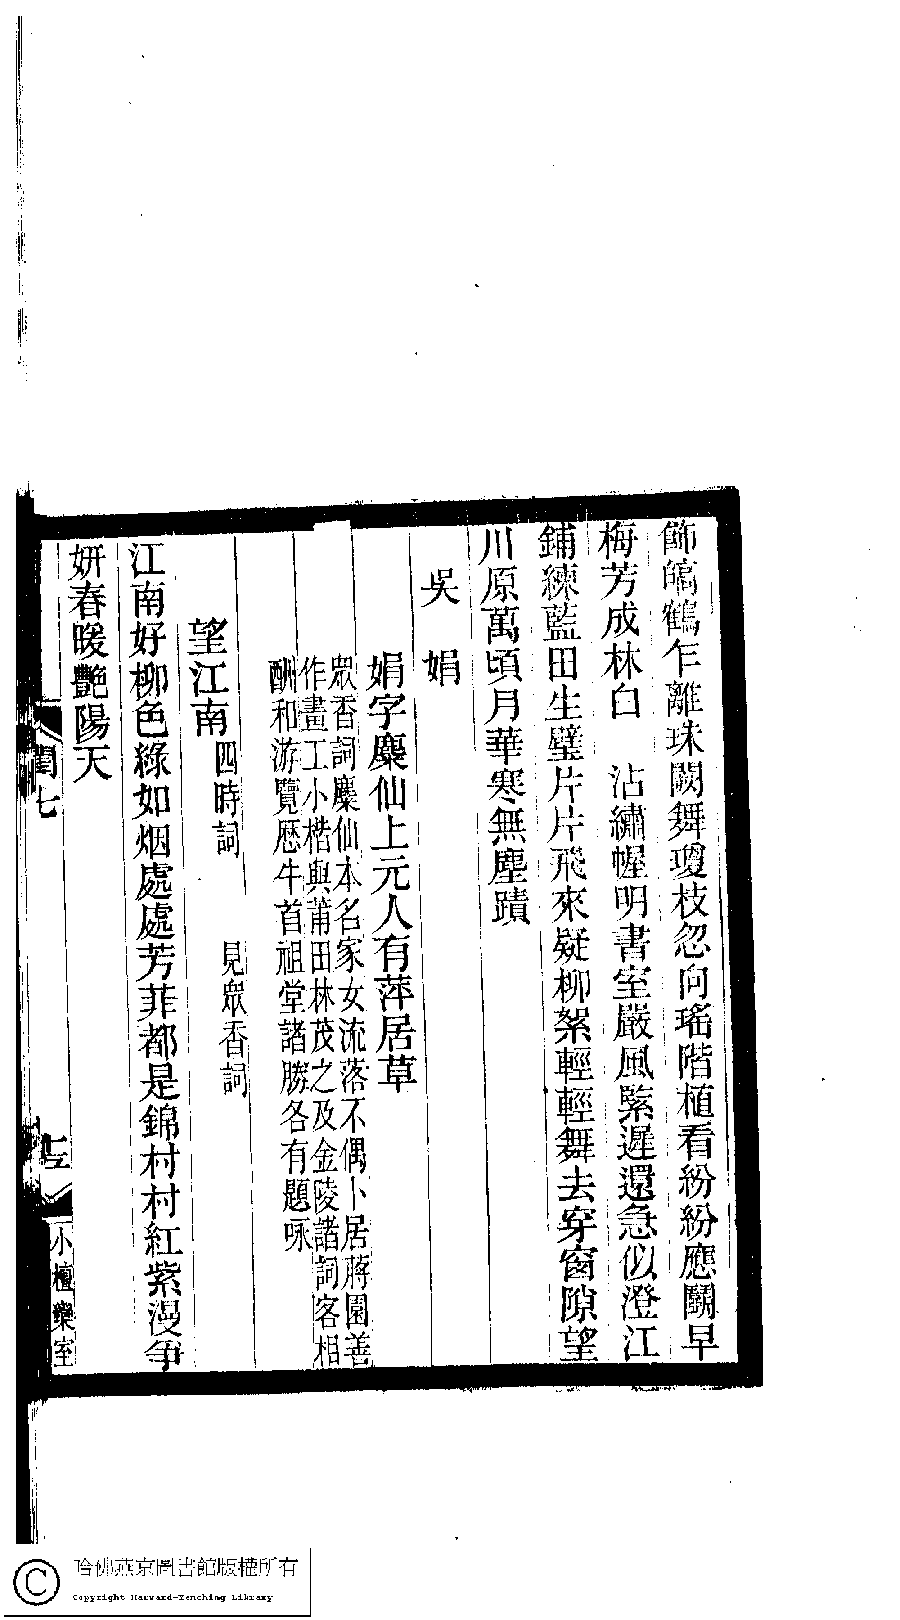 飾皜鶴乍離珠闕舞瓊枝忽向瑤階植看紛紛應鬬早
梅芳成林白　沾繡幄明書室嚴風緊遲還急似澄江
鋪練藍田生璧片片飛來疑柳絮輕輕舞去穿窗隙望
川原萬頃月華寒無塵蹟
吳　娟
娟字麋仙上元人有萍居草
眾香詞麋仙本名家女流落不偶卜居蔣園善
作畫工小楷與莆田林茂之及金陵諸詞客相
酬和游覽歷牛首祖堂諸勝各有題咏
望江南 四時詞　見眾香詞
江南好柳色綠如烟處處芳菲都是錦村村紅紫漫爭
妍春暖艷陽天
閏七
小檀欒室
哈佛燕京圖書館版權所有
Copyright Harvard-Yenching Library